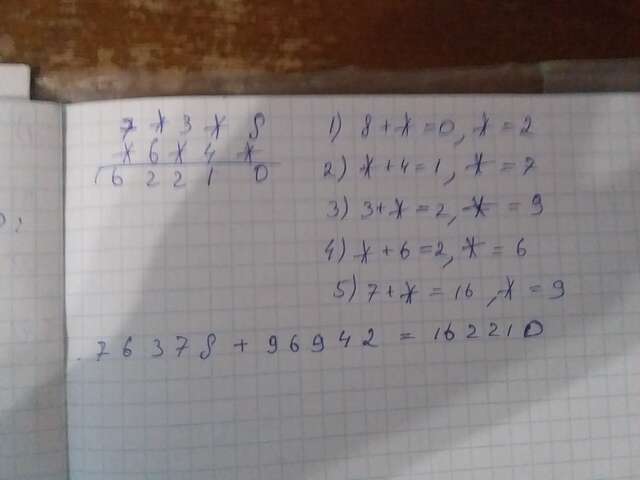 7*3*8
*6*4*
162210
1) 8+*=0, *=2
2) *+4=1, *=7
3) 3+*=2, *=9
4) *+6=2, *=6
5) 7+*=16, *=9
76378+96942=162210